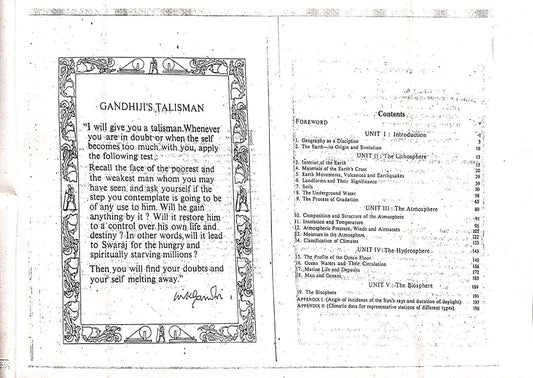 GANDHIJI'S TALISMAN
"I will give you a talisman. Whenever
you are in doubt or when the self
becomes too much with you, apply
the following test:
Recall the face of the poorest and
the weakest man whom you may
have seen and ask yourself if the
step you contemplate is going to be
of any use to him. Will he gain
anything by it ? Will it restore him
to a control over his own life and
destiny ? In other words, will it lead
to Swaraj for the hungry and
spiritually starving millions ?
Then you will find your doubts and
your self melting away."
Contents
FOREWORD
UNIT I : Introduction
1. Geography as a Discipline
2. The Earth—its Origin and Evolution
UNIT II : The Lithosphere
3. Interior of the Earth
4. Materials of the Earth's Crust
5. Earth Movements, Volcanoes and Earthquakes
6. Landforms and Their Significance
7. Soils
8. The Underground Water
9. The Process of Gradation
UNIT III : The Atmosphere
10. Composition and Structure of the Atmosphere
11. Insolation and Temperature
12. Atmospheric Pressure, Winds and Airmasses
13. Moisture in the Atmosphere
14. Classification of Climates
UNIT IV : The Hydrosphere
15. The Profile of the Ocean Floor
16. Ocean Waters and Their Circulation
17. Marine Life and Deposits
18. Man and Oceans
UNIT V : The Biosphere
19. The Biosphere
APPENDIX I: (Angle of incidence of the Sun's rays and duration of daylight)
APPENDIX II (Climatic data for representative stations of different types)